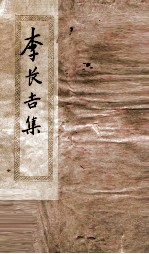 李长吉集